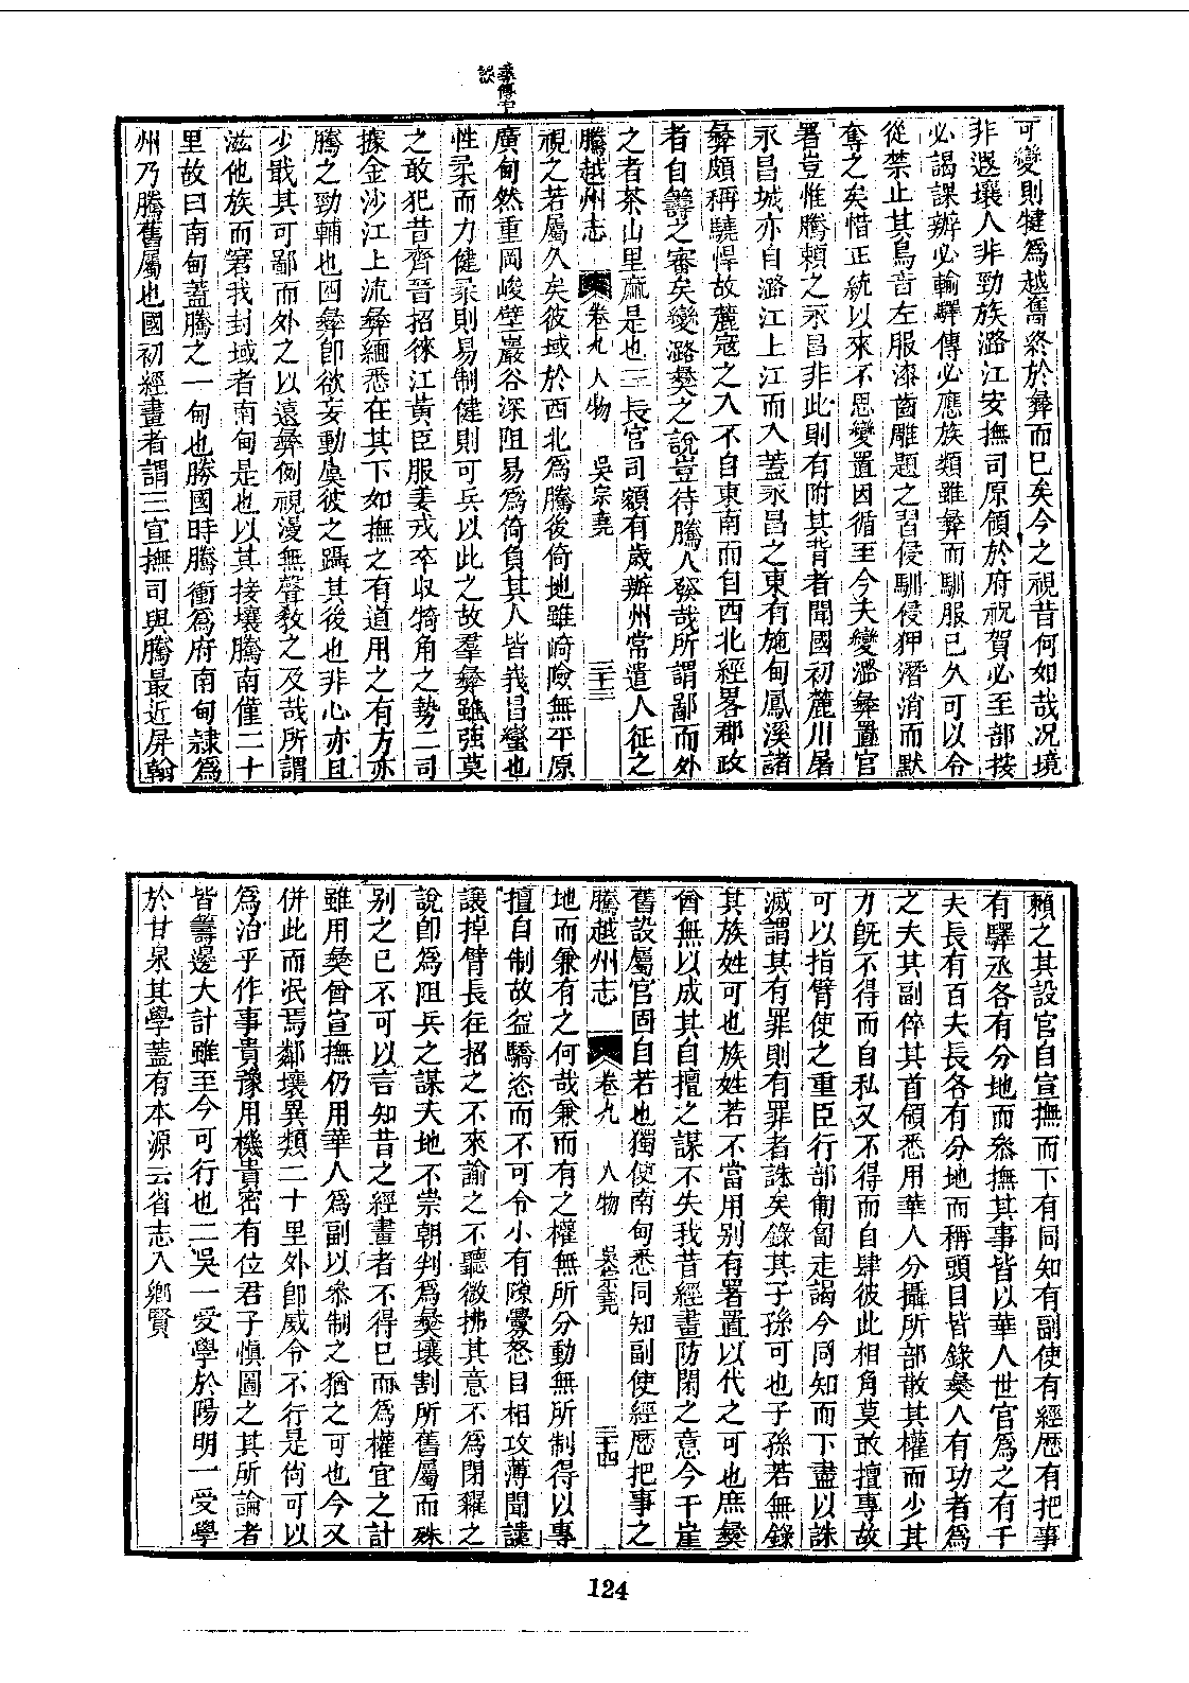 可變則犍爲越舊終於彝而已矣今之視昔何如哉况境
非遐壤人非勁族潞江安撫司原領於府祝賀必至部按
必謁課辦必輸驛傳必應族類雖彝而馴服已久可以令
從禁止其鳥音左服漆齒雕題之習侵馴侵狎潛消而默
奪之矣惜正統以來不思變置因循至今夫變潞彝置官
署豈惟騰賴之永昌非此則有附其背者聞國初麓川屠
永昌城亦自潞江上江而入蓋永昌之東有施甸鳳溪諸
彝頗稱驍悍故麓寇之入不自東南而自西北經畧郡政
者自籌之審矣變潞僰之說豈待騰人發哉所謂鄙而外
之者茶山里麻是也三長官司額有歲辦州常遣人征之
騰越州志 卷九 人物 吳宗堯 三十三
視之若屬久矣彼域於西北爲騰後倚地雖崎險無平原
廣甸然重岡峻壁巖谷深阻易爲倚負其人皆峩昌蠻也
性柔而力健柔則易制健則可兵以此之故羣彝雖強莫
之敢犯昔齊晉招徠江黃臣服姜戎卒収犄角之勢二司
據金沙江上流彝緬悉在其下如撫之有道用之有方亦
騰之勁輔也囡彝卽欲妄動虞彼之躡其後也非心亦且
少戢其可鄙而外之以遠彝例視漫無聲教之及哉所謂
滋他族而窘我封域者南甸是也以其接壤騰南僅二十
里故曰南甸蓋騰之一甸也勝國時騰衝爲府南甸隸爲
州乃騰舊屬也國初經畫者謂三宣撫司與騰最近屏翰
賴之其設官自宣撫而下有同知有副使有經歷有把事
有驛丞各有分地而叅撫其事皆以華人世官爲之有千
夫長有百夫長各有分地而稱頭目皆錄僰人有功者爲
之夫其副倅其首領悉用華人分攝所部散其權而少其
力旣不得而自私又不得而自肆彼此相角莫敢擅專故
可以指臂使之重臣行部匍匐走謁今同知而下盡以誅
滅謂其有罪則有罪者誅矣錄其子孫可也子孫若無錄
其族姓可也族姓若不當用别有署置以代之可也庶僰
酋無以成其自擅之謀不失我昔經畫防閑之意今干崖
舊設屬官固自若也獨使南甸悉同知副使經歷把事之
騰越州志 卷九 人物 吳宗堯 三十四
地而兼有之何哉兼而有之權無所分動無所制得以專
擅自制故益驕恣而不可令小有隙釁怒目相攻薄聞譴
讓掉臂長往招之不來諭之不聽微拂其意不爲閉糴之
說卽爲阻兵之謀夫地不崇朝判爲僰壤割所舊屬而殊
别之已不可以言知昔之經畫者不得已而爲權宜之計
雖用僰酋宣撫仍用華人爲副以叅制之猶之可也今又
併此而泯焉鄰壤異類二十里外卽威令不行是尙可以
爲治乎作事貴豫用機貴密有位君子愼圖之其所論者
皆籌邊大計雖至今可行也二吳一受學於陽明一受學
於甘泉其學蓋有本源云省志入鄉賢
124